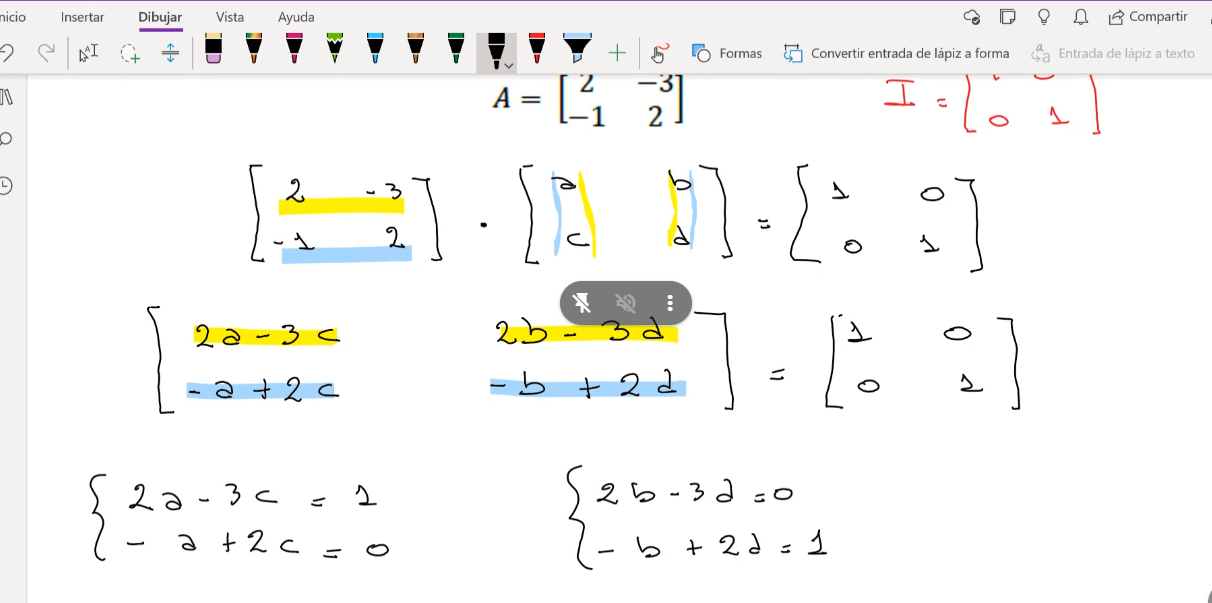 nicio Insertar Dibujar Vista Ayuda Compartir
Formas Convertir entrada de lápiz a forma Entrada de lápiz a texto
A = [ 2 −3
−1 2 ]
I = [
0 1 ]
[ 2 -3 ] · [ a b ] = [ 1 0 ]
[ -1 2 ] [ c d ] [ 0 1 ]
[ 2a - 3c 2b - 3d ] = [ 1 0 ]
[ -a + 2c -b + 2d ] [ 0 1 ]
{ 2a - 3c = 1 { 2b - 3d = 0
- a + 2c = 0 - b + 2d = 1